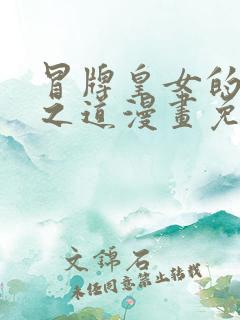 冒牌皇女的
之道漫畫免
文錦石
未经同意禁止转载